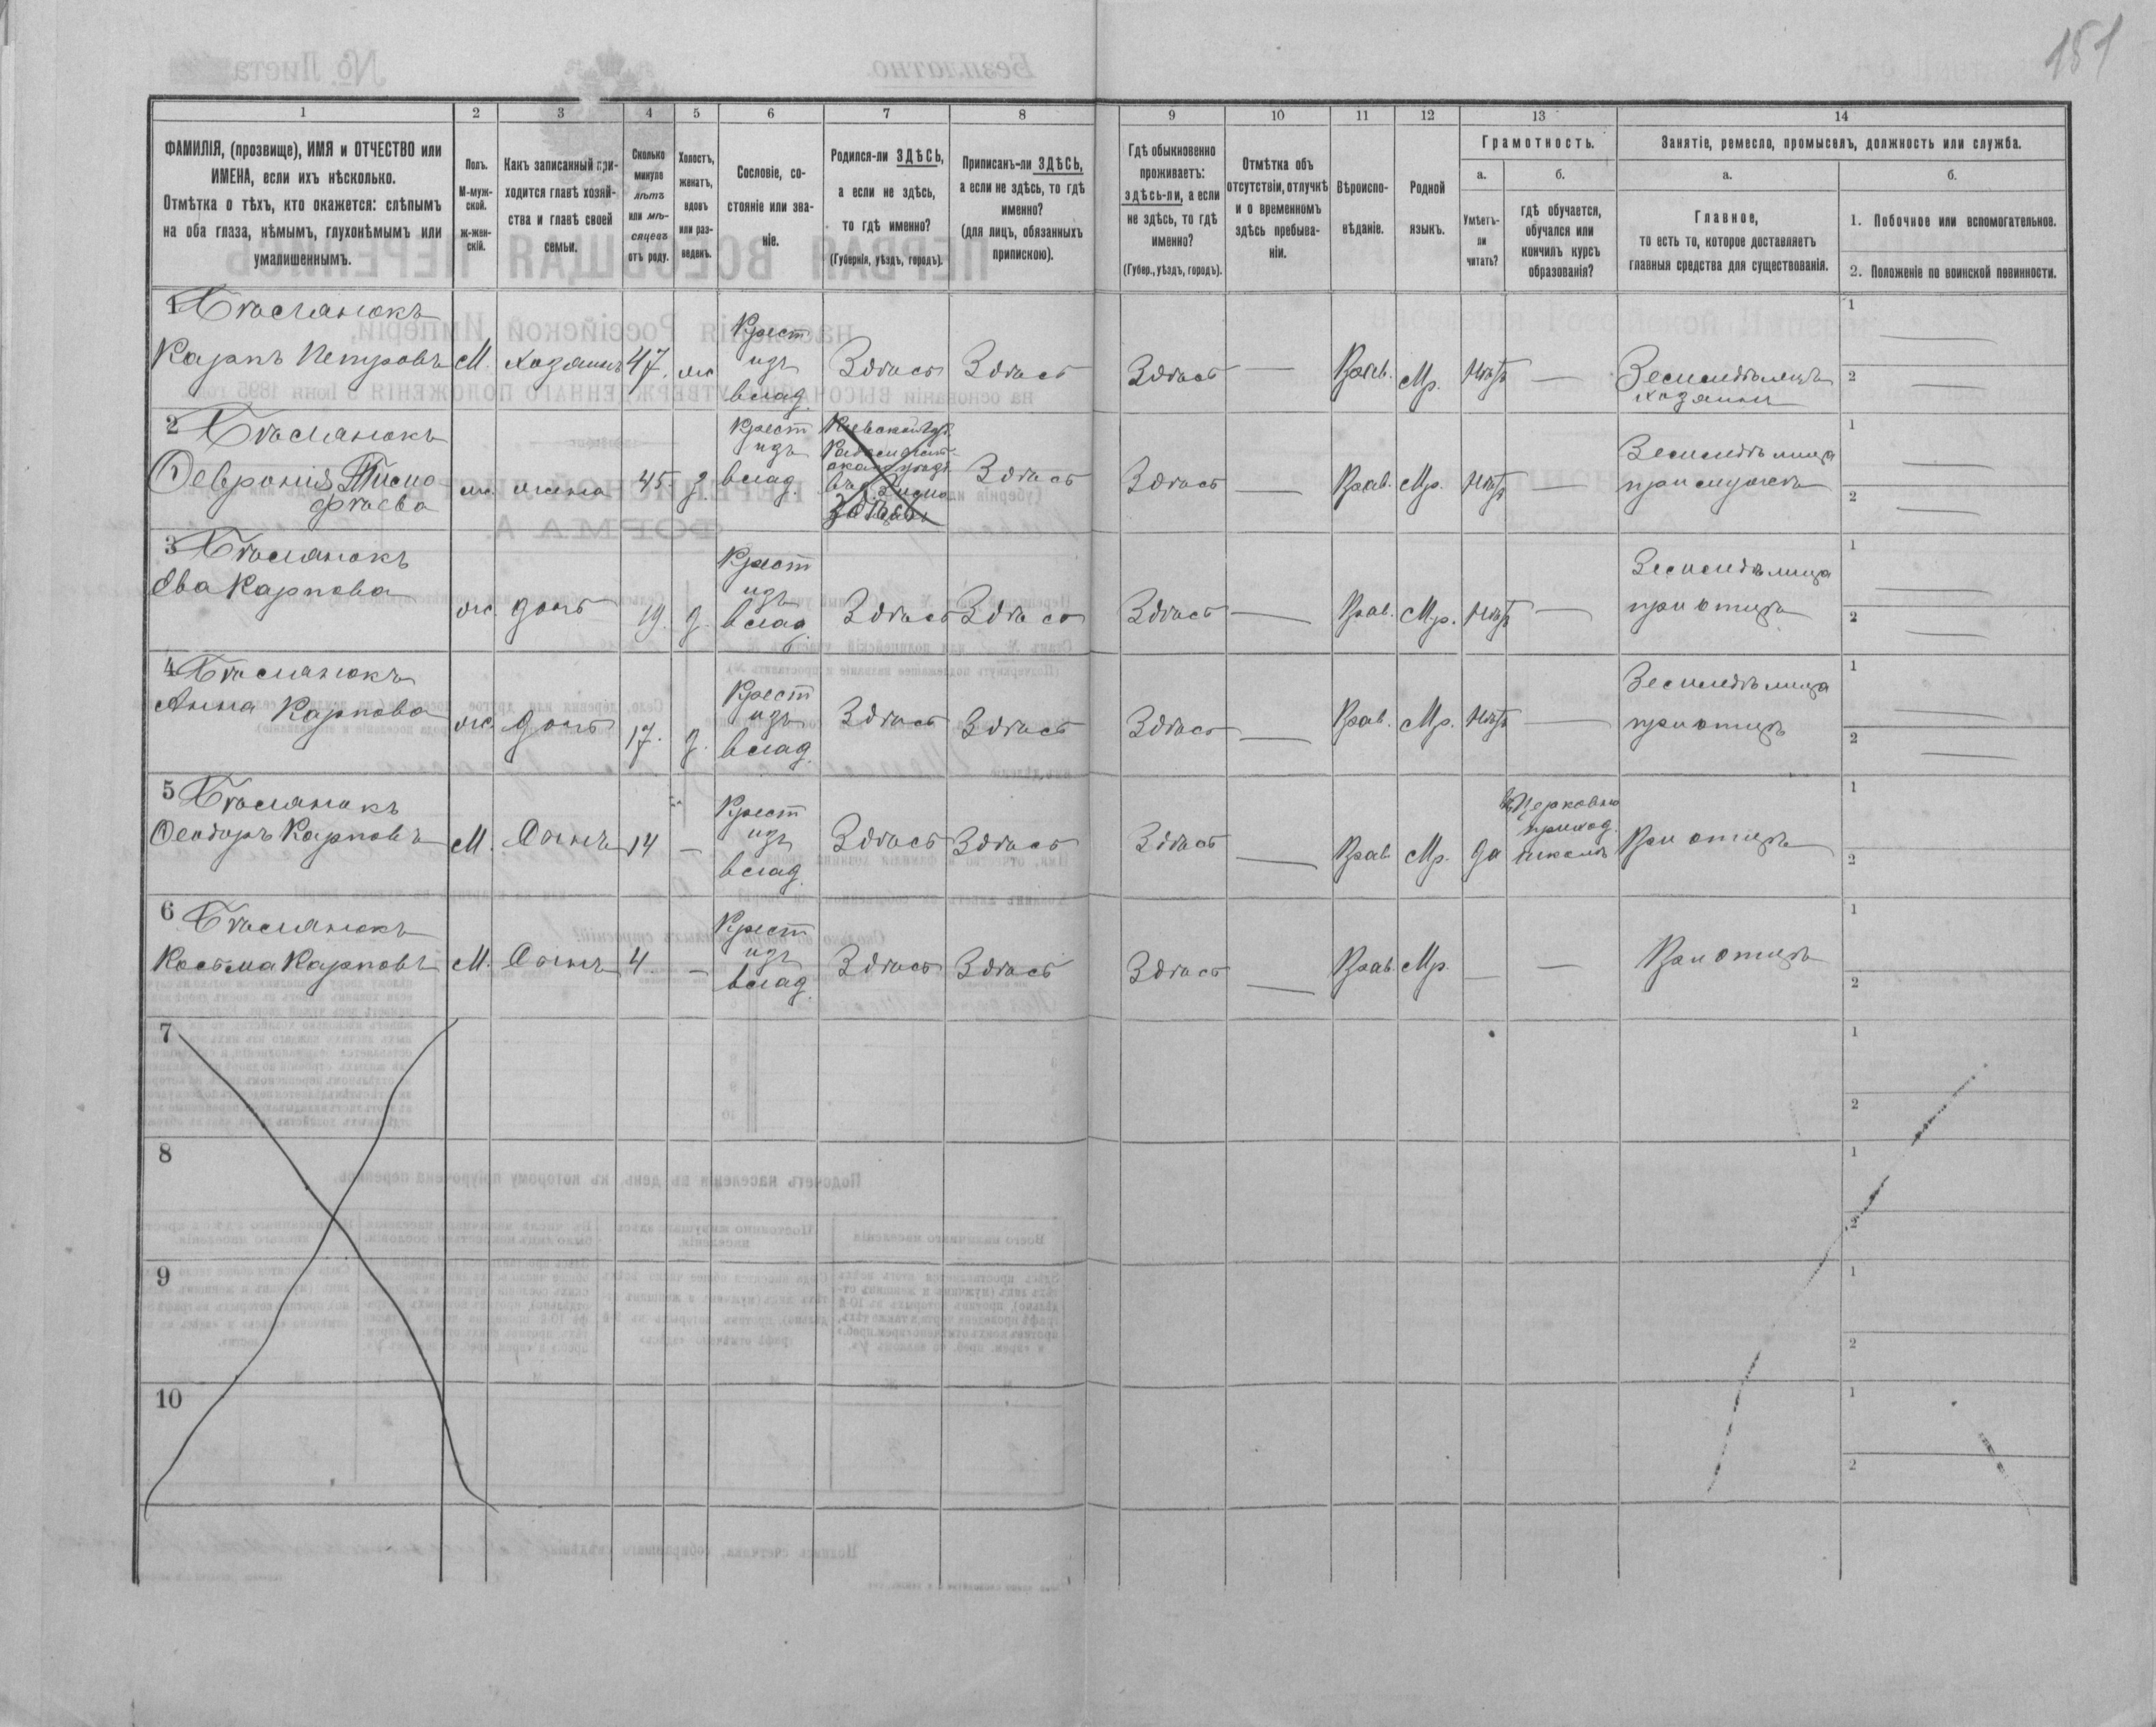 151
1 2 3 4 5 6 7 8 9 10 11 12 13 14
ФАМИЛІЯ, (прозвище), ИМЯ и ОТЧЕСТВО или
ИМЕНА, если ихъ нѣсколько.
Отмѣтка о тѣхъ, кто окажется: слѣпымъ
на оба глаза, нѣмымъ, глухонѣмымъ или
умалишеннымъ.
Полъ.
М-муж-
ской.
Ж-жен-
скій.
Какъ записанный при-
ходится главѣ хозяй-
ства и главѣ своей
семьи.
Сколько
минуло
лѣтъ
или мѣ-
сяцевъ
отъ роду.
Холостъ,
женатъ,
вдовъ
или раз-
веденъ.
Сословіе, со-
стояніе или зва-
ніе.
Родился-ли ЗДѢСЬ,
а если не здѣсь,
то гдѣ именно?
(Губернія, уѣздъ, городъ).
Приписанъ-ли ЗДѢСЬ,
а если не здѣсь, то гдѣ
именно?
(для лицъ, обязанныхъ
припискою).
Гдѣ обыкновенно
проживаетъ:
здѣсь-ли, а если
не здѣсь, то гдѣ
именно?
(Губер., уѣздъ, городъ).
Отмѣтка объ
отсутствіи, отлучкѣ
и о временномъ
здѣсь пребыва-
ніи.
Вѣроиспо-
вѣданіе.
Родной
языкъ.
Грамотность.
а.
Умѣетъ-
ли
читать?
б.
гдѣ обучается,
обучался или
кончилъ курсъ
образованія?
Занятіе, ремесло, промыселъ, должность или служба.
а.
Главное,
то есть то, которое доставляетъ
главныя средства для существованія.
б.
1. Побочное или вспомогательное.
2. Положеніе по воинской повинности.
1
Карпъ Петровъ М. хозяинъ 47. ж
Крест
изъ
влад.
Здѣсь Здѣсь Здѣсь — Прав. Мр. Нѣтъ —
Земледѣлецъ
хозяинъ
1 —
2 —
2
Февронія Тимо
фѣева
ж. жена 45. з.
Крест
изъ
влад.
Здѣсь
Здѣсь Здѣсь — Прав. Мр. Нѣтъ —
Земледѣлица
при мужѣ
1 —
2 —
3
Ева Карпова
ж. дочь 19. д.
Крест
изъ
влад.
Здѣсь Здѣсь Здѣсь — Прав. Мр. Нѣтъ —
Земледѣлица
при отцѣ
1 —
2 —
4
Анна Карпова
ж. дочь 17. д.
Крест
изъ
влад.
Здѣсь Здѣсь Здѣсь — Прав. Мр. Нѣтъ —
Земледѣлица
при отцѣ
1 —
2 —
5
Феодоръ Карповъ М. Сынъ 14 —
Крест
изъ
влад.
Здѣсь Здѣсь Здѣсь — Прав. Мр. да
въ Церковно
приход.
школѣ
При отцѣ
1
2
6
Косьма Карповъ М. Сынъ 4. —
Крест
изъ
влад.
Здѣсь Здѣсь Здѣсь — Прав. Мр. — —
При отцѣ
1
2
7
1
2
8
1
2
9
1
2
10
1
2